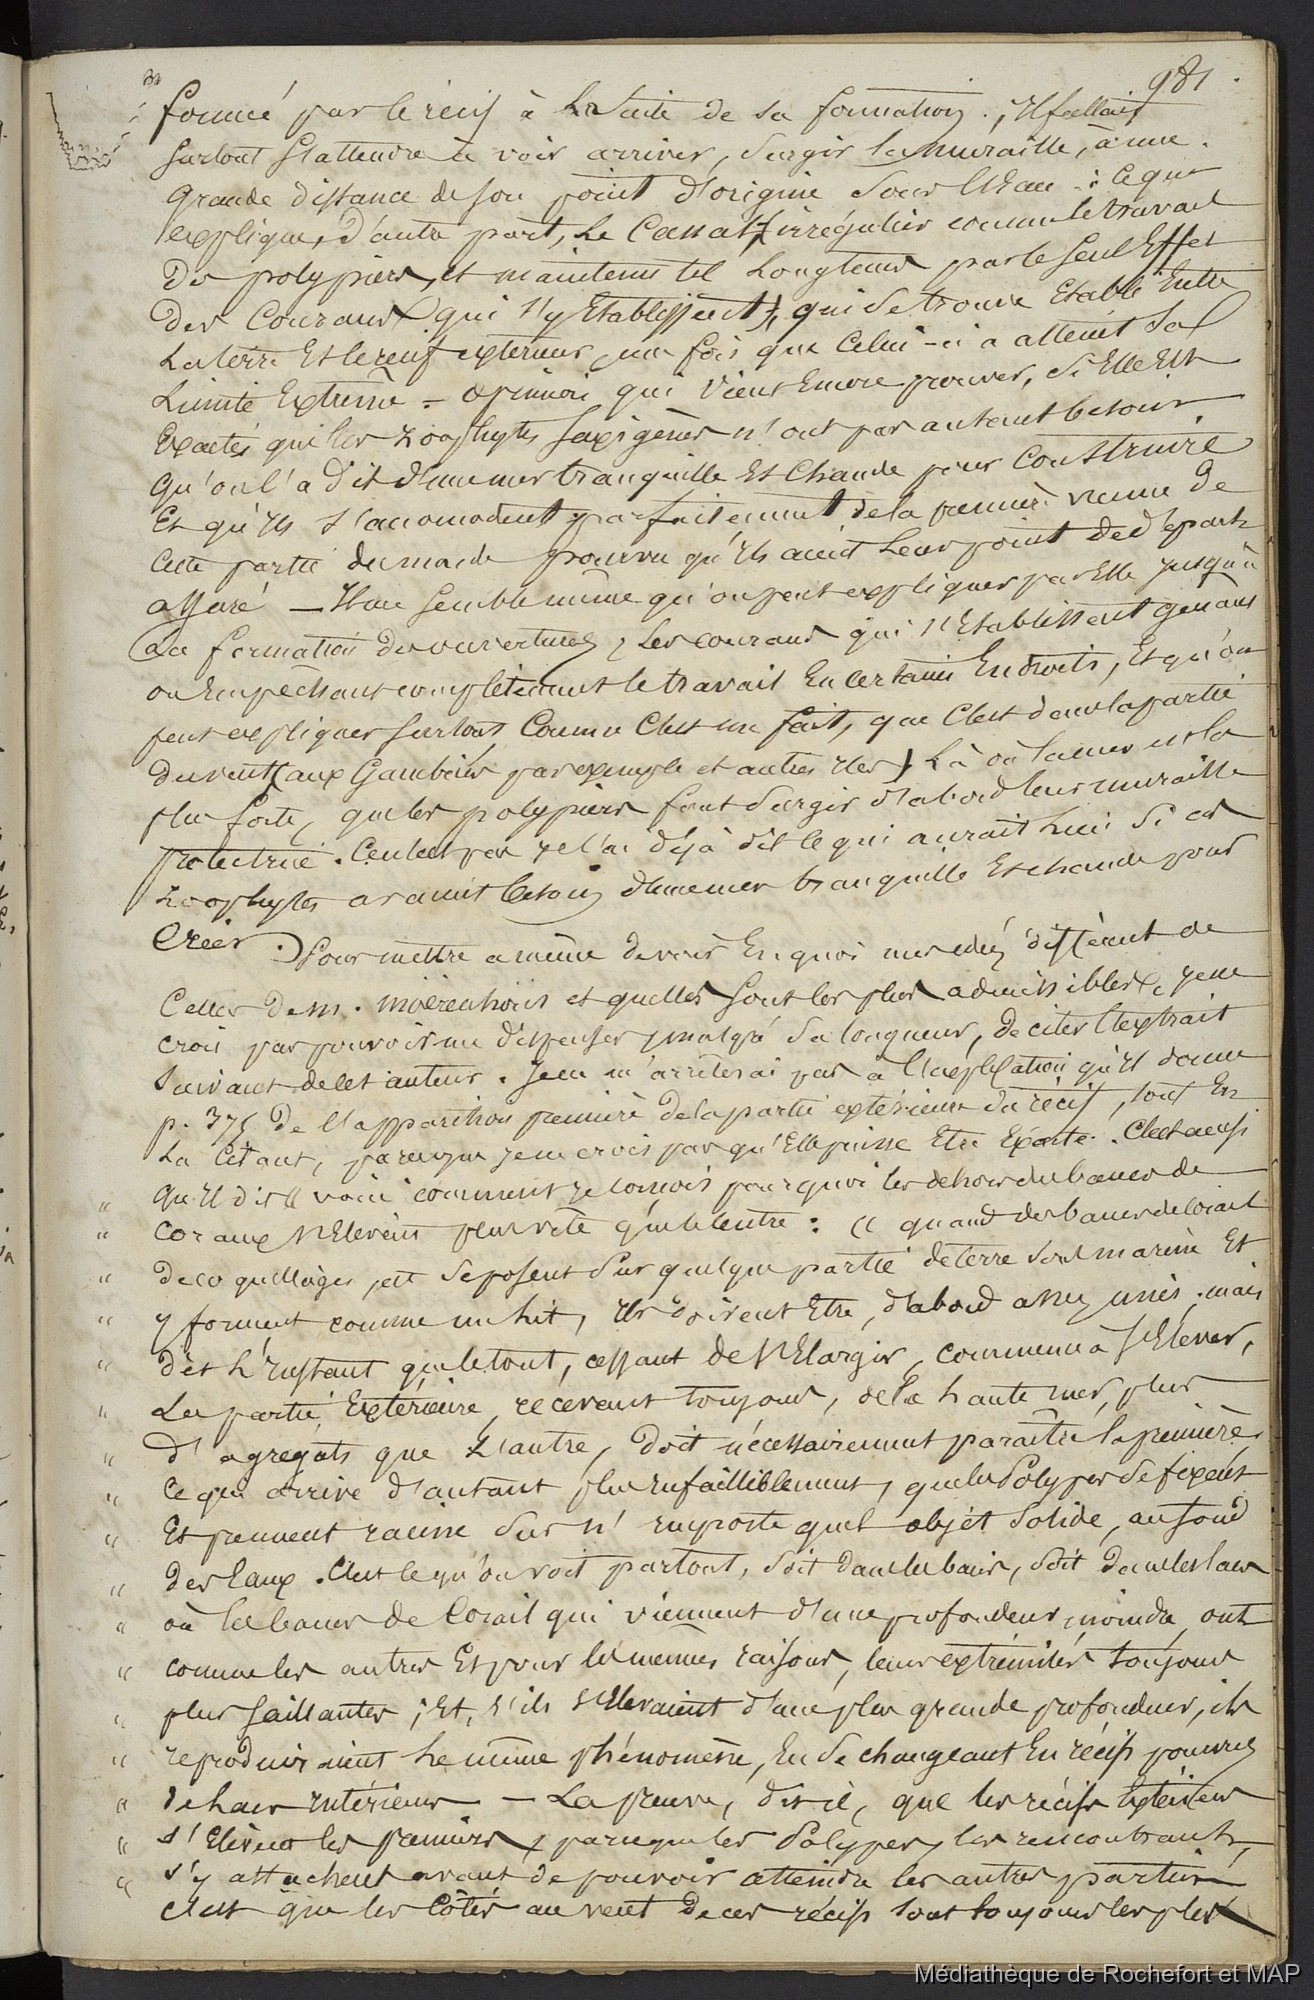 981.
formé par le récif à la suite de sa formation. , Il fallait
surtout s'attendre à voir arriver, surgir la muraille, à une
grande distance de son point d'origine sous l'Eau : ce que
explique, d'autre part, le Canal, irrégulier comme le travail
des polypiers, et maintenu tel longtems par le seul Effet
des Courans (qui s'y Etablissent), qui se trouve Etabli Entre
La terre Et le récif extérieur, une fois que Celui-ci a atteint sa
Limite Extrême = opinion qui vient Encore prouver, si Elle Est
Exacte, que les Zoophytes saxigènes n'ont pas autant besoin
qu'on l'a dit d'une mer tranquille Et Chaude pour Construire
Et qu'Ils s'accomodent parfaitement de la première venue de
Cette partie du monde pourvu qu'Ils aient leur point de départ
assuré — Il me semble même qu'on peut expliquer par Elle jusqu'à
La formation des ouvertures, les courans qui s'Etablissent gênans
ou Empêchant complètement le travail En certains Endroits, Et qu'on
peut expliquer surtout Comme C'est un fait, que C'est dans la partie
du vent (aux Gambier par exemple et autres Iles) Là où la mer est la
plus forte, que les polypiers font surgir d'abord leur muraille
protectrice. Ce n'est pas je l'ai déjà dit ce qui aurait lieu si ces
Zoophytes avaient besoin d'une mer tranquille Et chaude pour
Créer.) Pour mettre a même de voir En quoi mes idées diffèrent de
Celles de M. Moërenhoüt et quelles sont les plus admissibles, je ne
crois pas pouvoir me dispenser, malgré sa longueur, de citer l'extrait
suivant de cet auteur. Je ne m'arrêterai pas à l'explication qu'Il donne
p. 375 de l'apparition première de la partie extérieure du récif, tout En
La Citant, parceque je ne crois pas qu'Elle puisse Etre Exacte. C'est ainsi
" qu'Il dit « voici comment je conçois pourquoi les dehors des bancs de
" coraux s'Elevent plus vite que le centre : « quand des bancs de Corail
" de coquillages, etc. se posent sur quelque partie de terre sous marine Et
" y forment comme un lit, Ils doivent Etre, d'abord assez unis ; mais
" dès L'Instant que le tout, cessant de s'Elargir, commence à s'Elever,
" La partie Extérieure, recevant toujours, de la haute mer, plus
" d'agrégats que L'autre, doit nécessairement paraître la première,
" Ce qui arrive d'autant plus Infailliblement, que les Polypes se fixent
" Et prennent racine sur n'importe quel objet solide, au fond
" des Eaux. C'est ce qu'on voit partout, soit dans les baies, soit dans les lacs
" où les bancs de Corail qui viennent d'une profondeur moindre, ont
" comme les autres Et pour les mêmes raisons, leurs extrémités toujours
" plus saillantes ; Et, s'ils s'Elevaient d'une plus grande profondeur, ils
" reproduiraient le même phénomène, En se changeant En récifs pourvus
" de lacs Intérieurs — La preuve, dit-il, que les récifs Extérieurs
" s'Elèvent les premiers, parceque les Polypes, les rencontrant,
" s'y attachent avant de pouvoir atteindre les autres parties
c'est que les Côtés au vent de ces récifs sont toujours les plus
Médiathèque de Rochefort et MAP